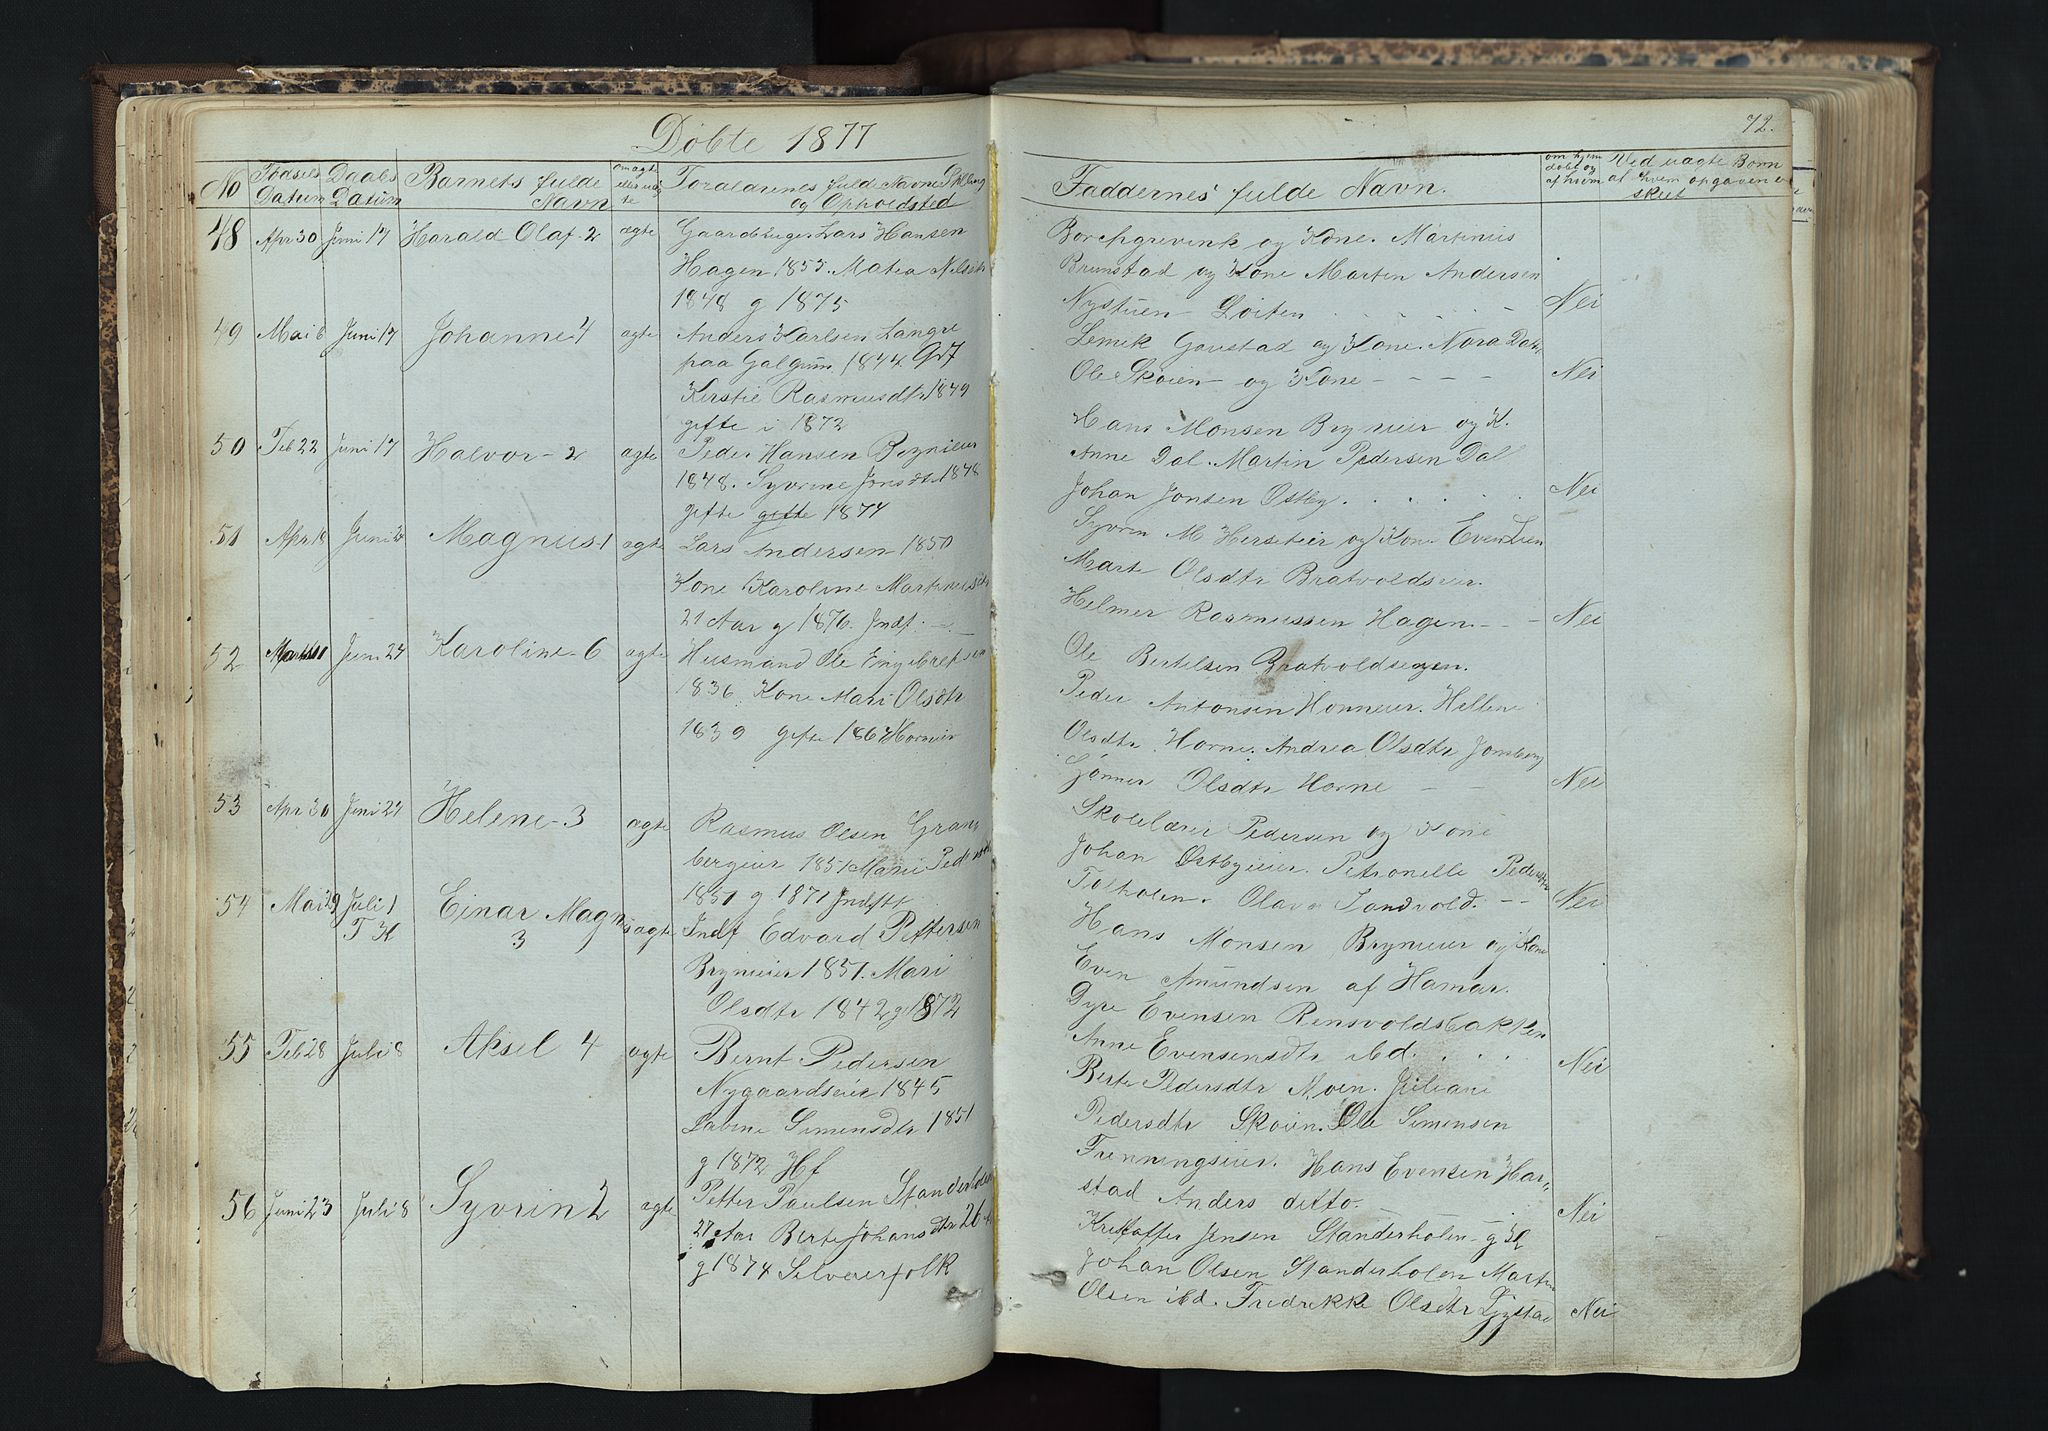 Døbte 1877
No
Fødsels Datum
Daabs Datum
Barnets fulde Navn
om ægte eller uægte
Forældrenes fulde Navne Stilling og Opholdsted
48 Apr 30 Juni 17 Harald Olaf. 2 ægte Gaardbruger Lars Hansen
Hagen 1855. Matea Nilsdtr
1848 g 1875
49 Mai 6 Juni 17 Johanne 4 ægte Anders Karlsen Langre
paa Galgum 1844 Gr7
Kerstie Rasmusdtr 1849
gefte i 1872
50 Feb 22 Juni 17 Halvor - 2 ægte Peder Hansen Brynieier
1848. Syvrine Jonsdtr 1848
gefte gefte 1874
51 Apr 18 Juni 24 Magnus 1 ægte Lars Andersen 1850
Kone Karoline Martinusdtr
21 Aar g 1876. Indf.
52 Juni 24 Karoline 6 ægte Husmand Ole Engebretsen
1836 Kone Mari Olsdtr
1839 gefte 1864 Horneier
53 Apr 30 Juni 24 Helene 3 ægte Rasmus Olsen Gran-
bergeier 1851 Marie Pedersdtr
1851 g 1871 Indstr
54 Mai 29 Juli 1 Einar Magnus ægte Indf Edvard Pettersen
T K 3
Brynieier 1851. Mari
Olsdtr 1842 g 1872
55 Feb 28 Juli 8 Aksel 4 ægte Bernt Pedersen
Nygaardseier 1845
Labine Simensdtr 1851
g 1872 Hf
56 Juni 23 Juli 8 Syvrin 2 ægte Petter Paulsen Standerholen
27 Aar Berte Johansdtr 26 A
g 1874 Selveierfolk
72.
Faddernes fulde Navn.
om hjem døbt og af hvem
Ved uægte Børn af hvem opgaven er skeet
Borchgrevink og Kone. Martinus
Brunstad og Kone Marten Andersen
Nystuen Løiten Nei
Lemek Gaustad og Kone. Nora Dal.
Ole Skøien og Kone Nei
Hans Monsen Brynieier og K.
Anne Dal. Martin Pedersen Dal
Johan Jonsen Østby. Nei
Syvren M Herseteier og Kone Even Lien
Marte Olsdtr Bratvoldseier.
Helmer Rasmussen Hagen Nei
Ole Bertelsen Bratvoldsegen.
Peder Antonsen Horneier. Hellene
Olsdtr Horne. Andrea Olsdtr Jonsberg
Gønner Olsdtr Horne Nei
Skolelærer Pedersen og Kone
Johan Østbyeier. Petronelle Pedersdtr
Tosholen. Olava Sandvold. Nei
Hans Monsen Brynieier og Kone
Even Amundsen af Hamar.
Dyre Evensen Rensvoldsbakken
Anne Evensensdtr ibd. Nei
Berte Pedersdtr Moen. Juliane
Pedersdtr Skøien. Ole Simensen
Frenningseier. Hans Evensen Har-
stad Anders ditto. Nei
Kristoffer Jensen Standerholen g K
Johan Olsen Standerholen Martin
Olsen ibd. Fredrikke Olsdtr Lystad Nei